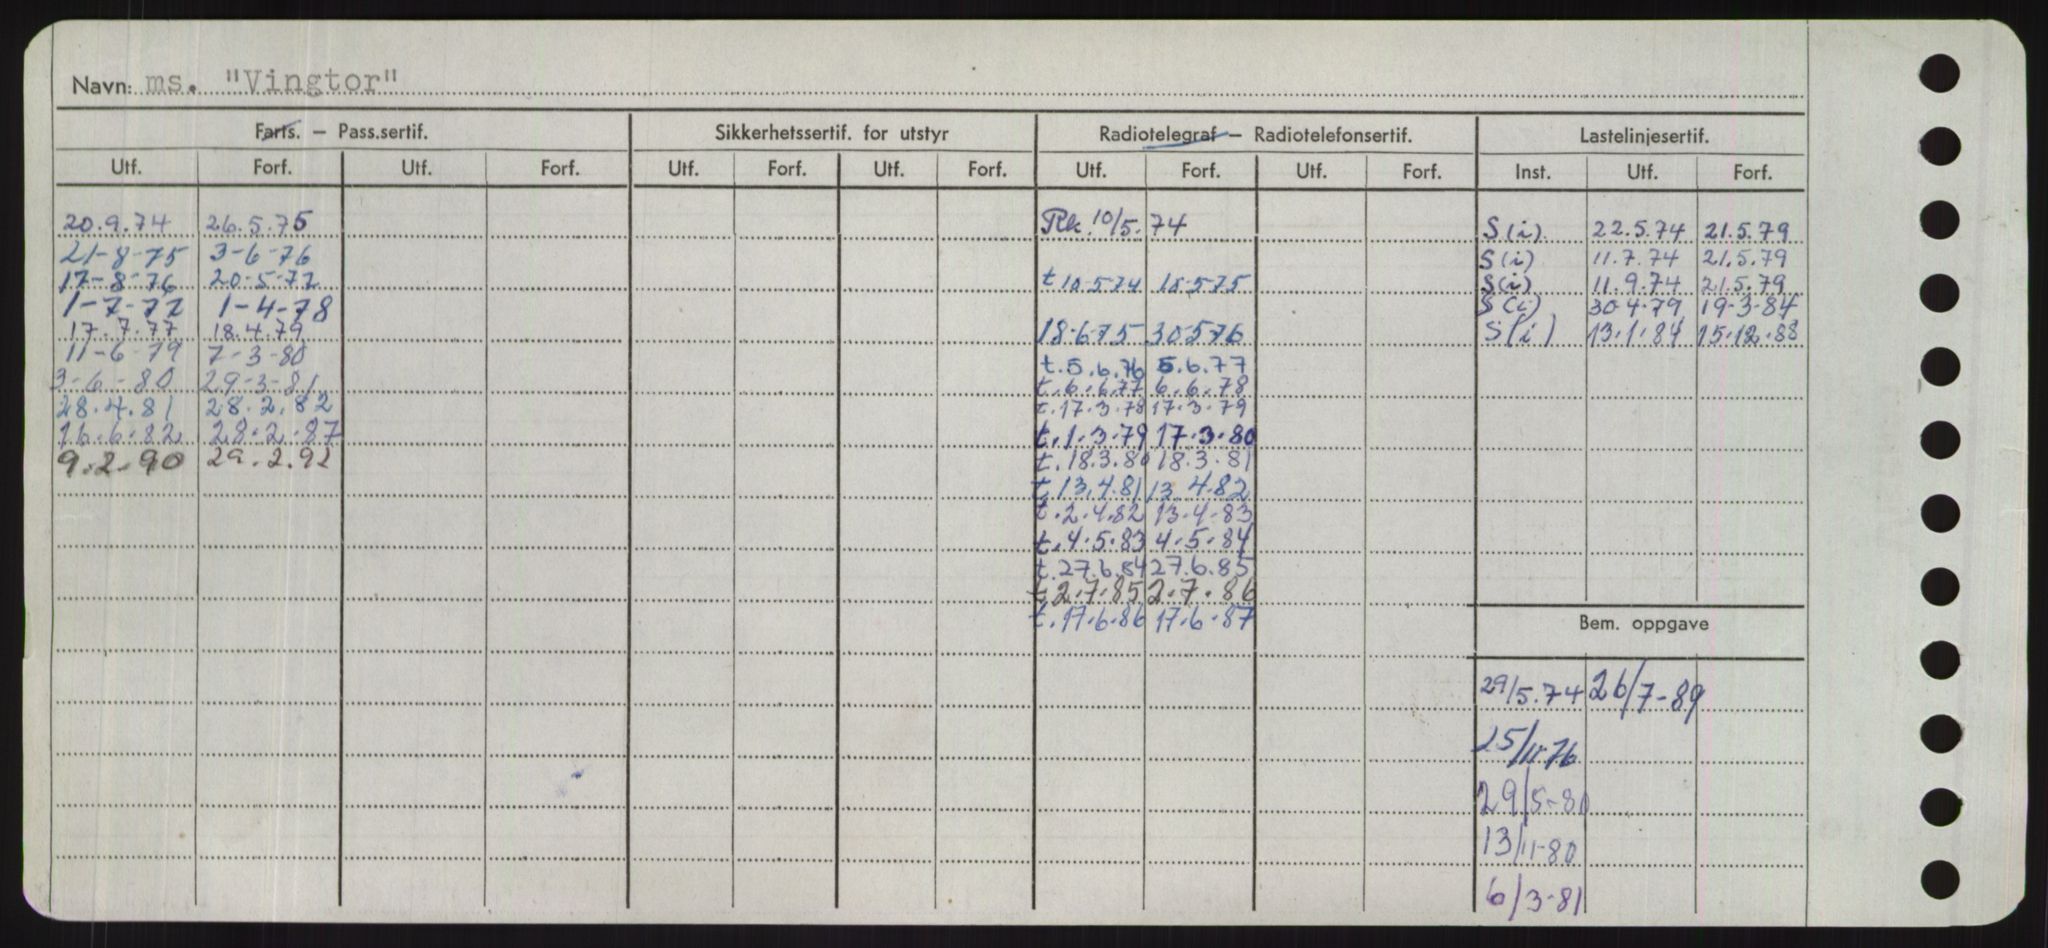 Navn: ms. "Vingtor"
Farts. – Pass.sertif. Sikkerhetssertif. for utstyr Radiotelegraf – Radiotelefonsertif. Lastelinjesertif.
Utf. Forf. Utf. Forf. Utf. Forf. Utf. Forf. Utf. Forf. Utf. Forf. Inst. Utf. Forf.
20.9.74 26.5.75 Rk. 10/5.74 S(i) 22.5.74 21.5.79
21-8-75 3-6-76 S(i) 11.7.74 21.5.79
17-8-76 20-5-77 t 10-5-74 10-5-75 S(i) 11.9.74 21.5.79
1-7-77 1-4-78 S(i) 30-4-79 19-3-84
17.7.77 18.4.79 18-6-75 30-5-76 S(i) 13.1.84 15.12.88
11-6-79 7-3-80 t.5.6.76 5.6.77
3-6-80 29-3-81 t.6.6.77 6.6.78
28.4.81 28.2.82 t.17.3.78 17.3.79
16.6.82 28.2.87 t.1.3.79 17.3.80
9.2.90 29.2.92 t.18.3.80 18.3.81
t.13.4.81 13.4.82
t.2.4.82 13.4.83
t.4.5.83 4.5.84
t.27.6.84 27.6.85
t.2.7.85 2.7.86
t.17.6.86 17.6.87
Bem. oppgave
29/5.74 26/7-89
25/11-76
29/5-80
13/11-80
6/3-81